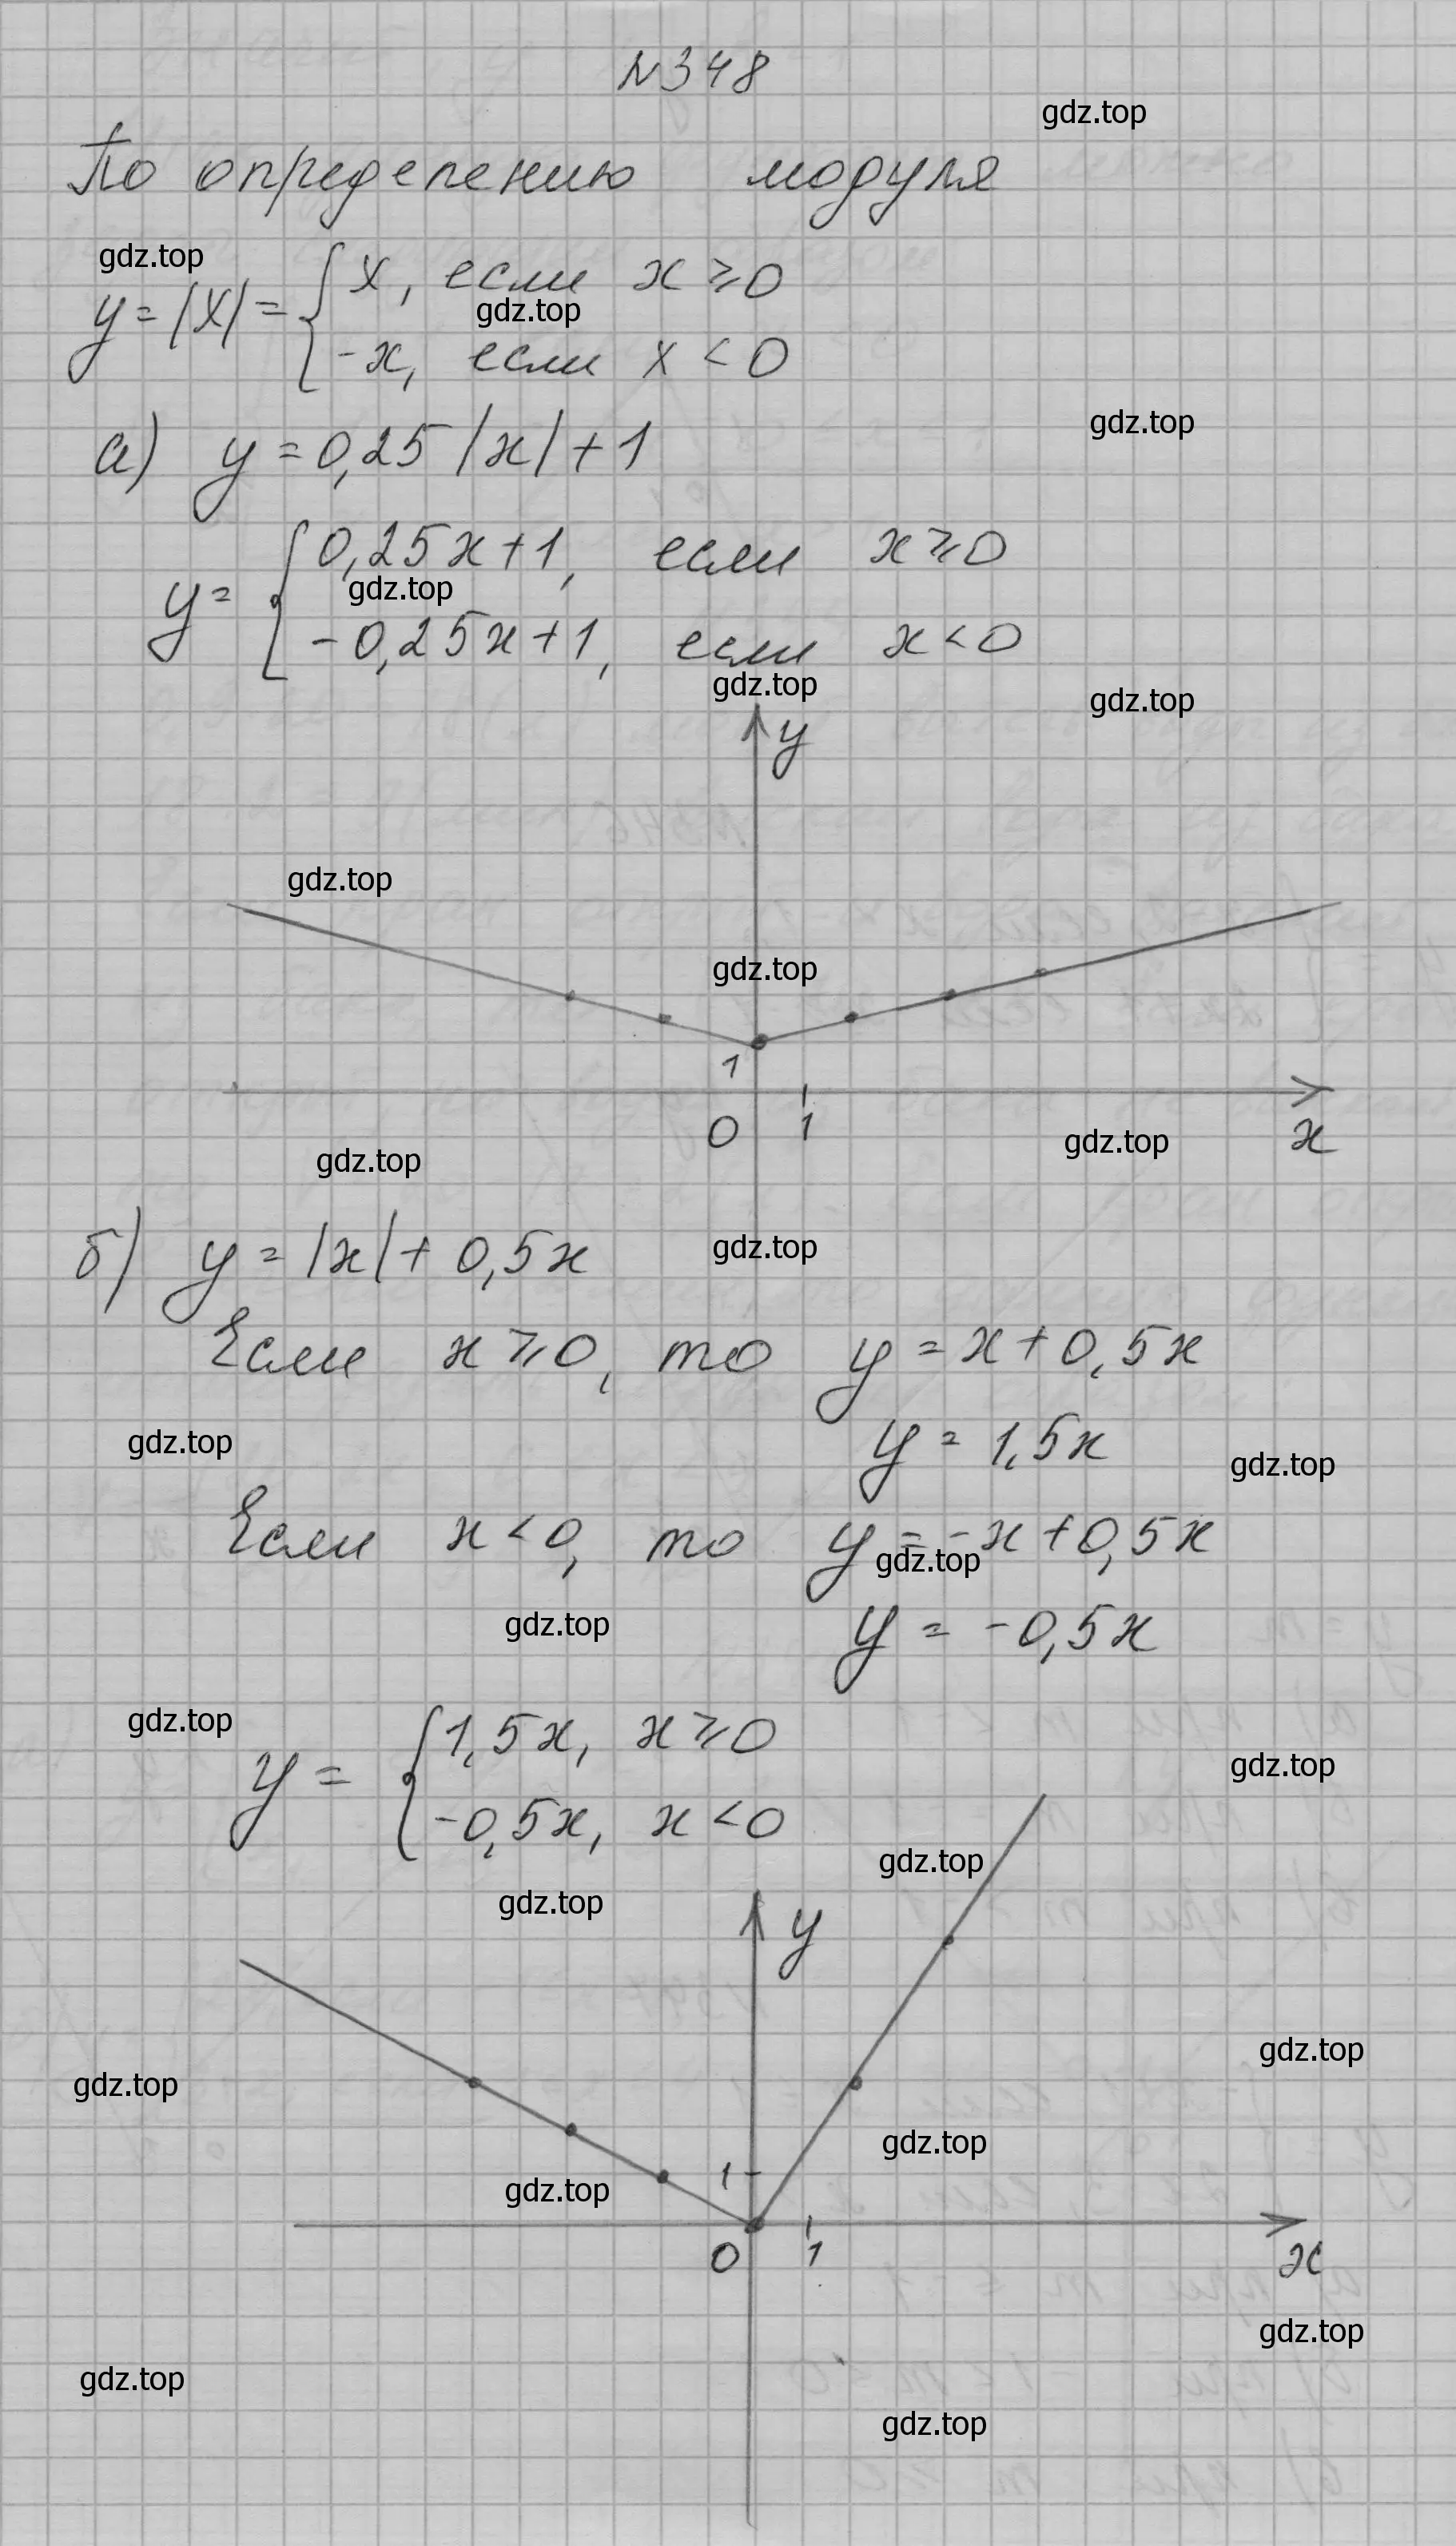 N348
gdz.top
По определению модуля
gdz.top
y = |x| = { x, если x ⩾ 0
gdz.top
-x, если x < 0
а) y = 0,25 |x| + 1
gdz.top
y = { 0,25x + 1, если x ⩾ 0
gdz.top
-0,25x + 1, если x < 0
gdz.top
gdz.top
y
gdz.top
gdz.top
1
0 1 x
gdz.top
gdz.top
б) y = |x| + 0,5x
gdz.top
Если x ⩾ 0, то y = x + 0,5x
gdz.top
y = 1,5x
gdz.top
Если x < 0, то y = -x + 0,5x
gdz.top
gdz.top
y = -0,5x
gdz.top
y = { 1,5x, x ⩾ 0
gdz.top
-0,5x, x < 0
gdz.top
gdz.top
y
gdz.top
gdz.top
gdz.top
1
gdz.top
0 1 x
gdz.top
gdz.top
gdz.top